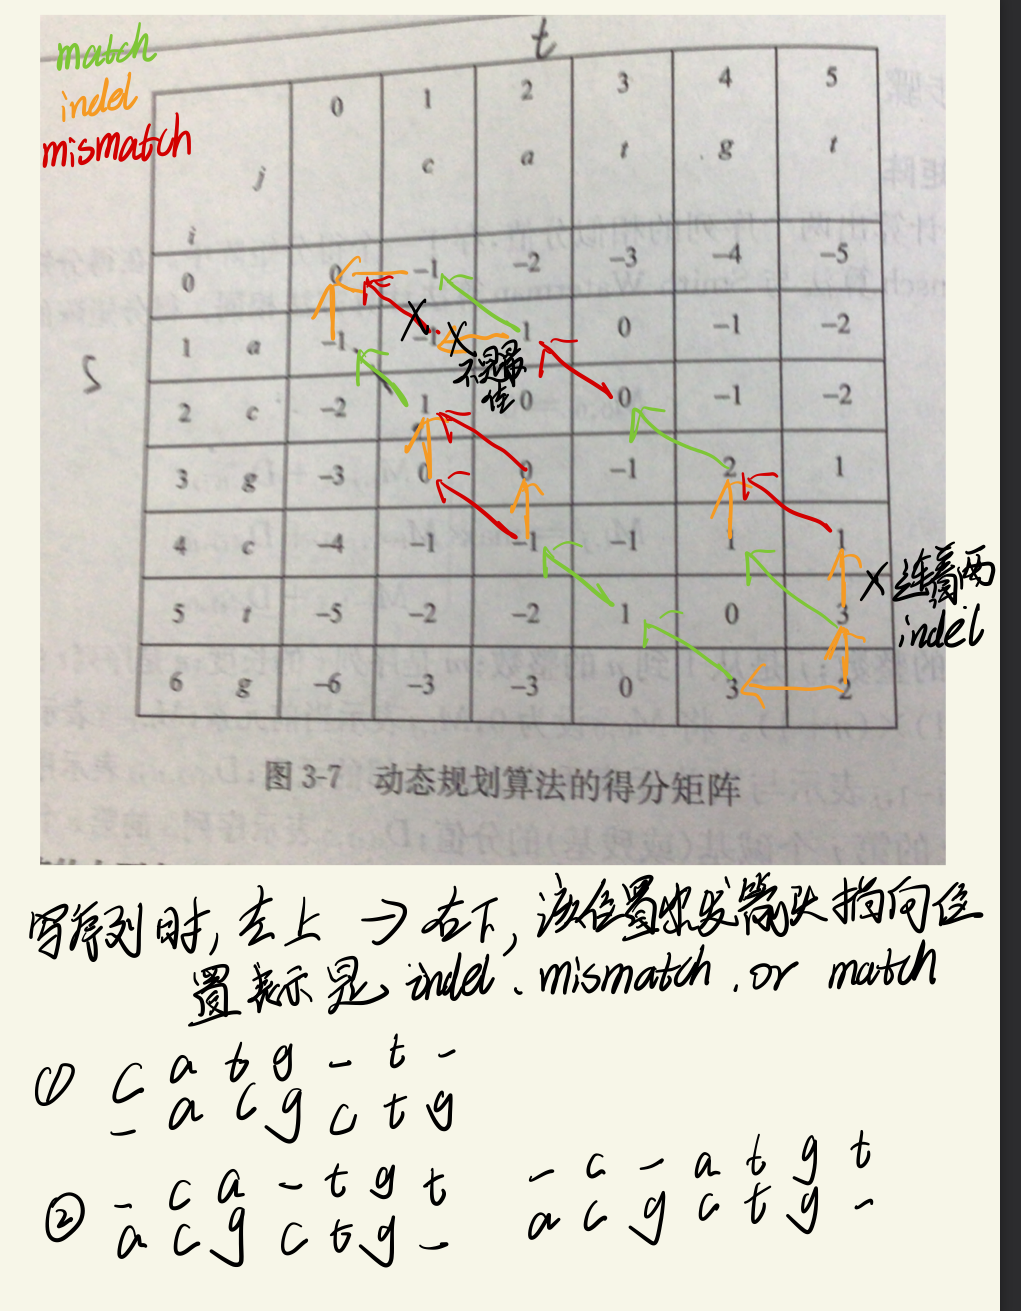 match
indel
mismatch
t
0 1 2 3 4 5
c a t g t
j
i
0 0 -1 -2 -3 -4 -5
1 a -1 -1 1 0 -1 -2
不是最佳
S
2 c -2 1 0 0 -1 -2
3 g -3 0 0 -1 2 1
4 c -4 -1 -1 -1 1 1
X 连着两
indel
5 t -5 -2 -2 1 0 3
6 g -6 -3 -3 0 3 2
图 3-7 动态规划算法的得分矩阵
写序列时, 左上 → 右下, 该位置出发箭头指向位
置表示是 indel、mismatch, or match
① c a t g - t -
- a c g c t g
② - c a - t g t
a c g c t g -
- c - a t g t
a c g c t g -